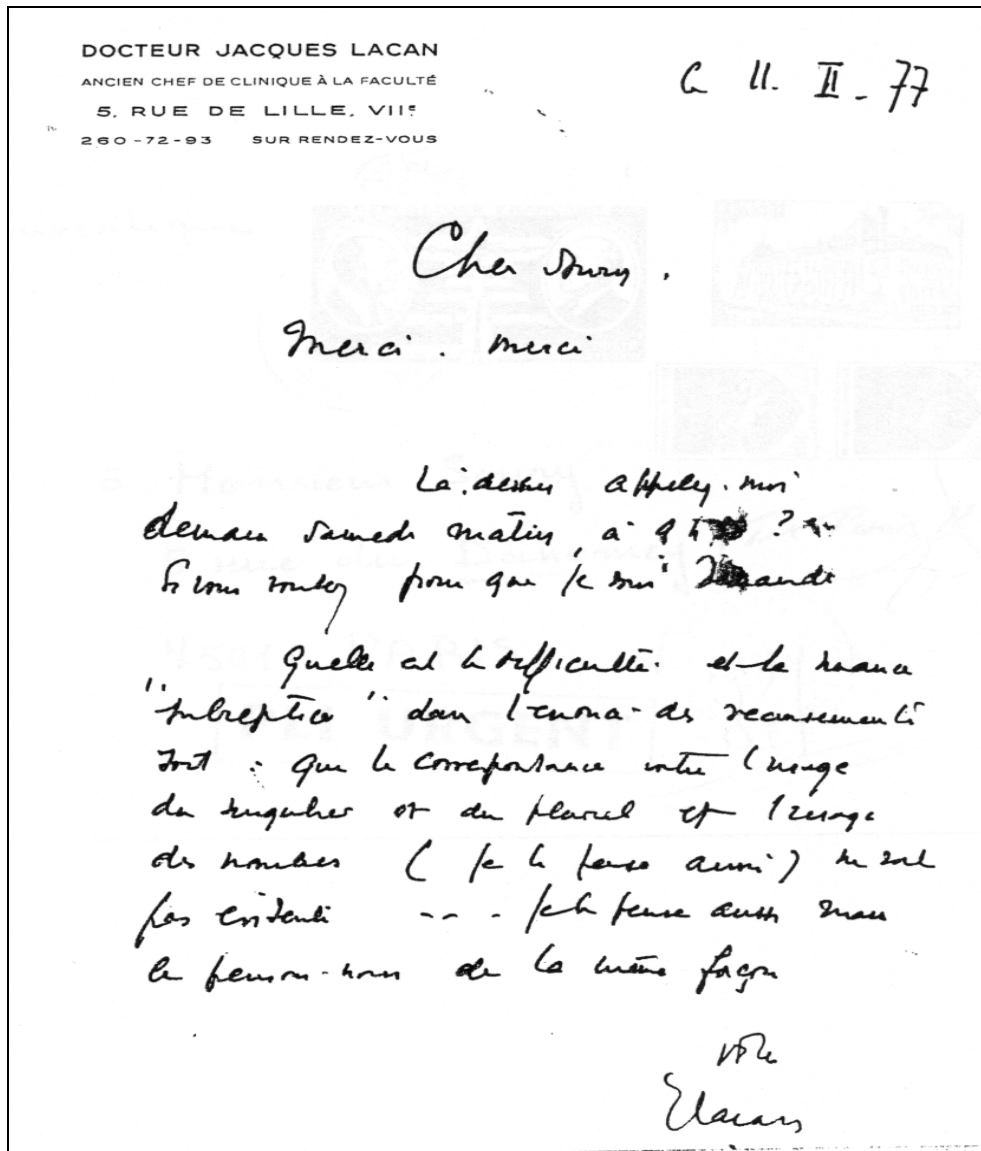 DOCTEUR JACQUES LACAN
ANCIEN CHEF DE CLINIQUE À LA FACULTÉ
5, RUE DE LILLE, VIIe
260-72-93 SUR RENDEZ-VOUS
11. II - 77
Cher Soury.
Merci. merci
Là-dessus appelez-moi
demain samedi matin, à 9 h ?
Si vous voulez pour que je
Quelle est la difficulté et la nuance
"subreptice" dans des recensements
soit : que la correspondance entre l'usage
du singulier et du pluriel et l'usage
des nombres ( je le pense aussi ) ne soit
pas évidente --- je le pense aussi mais
le pensons-nous de la même façon
votre
JLacan
à Monsieur Soury
PARIS
URGENT